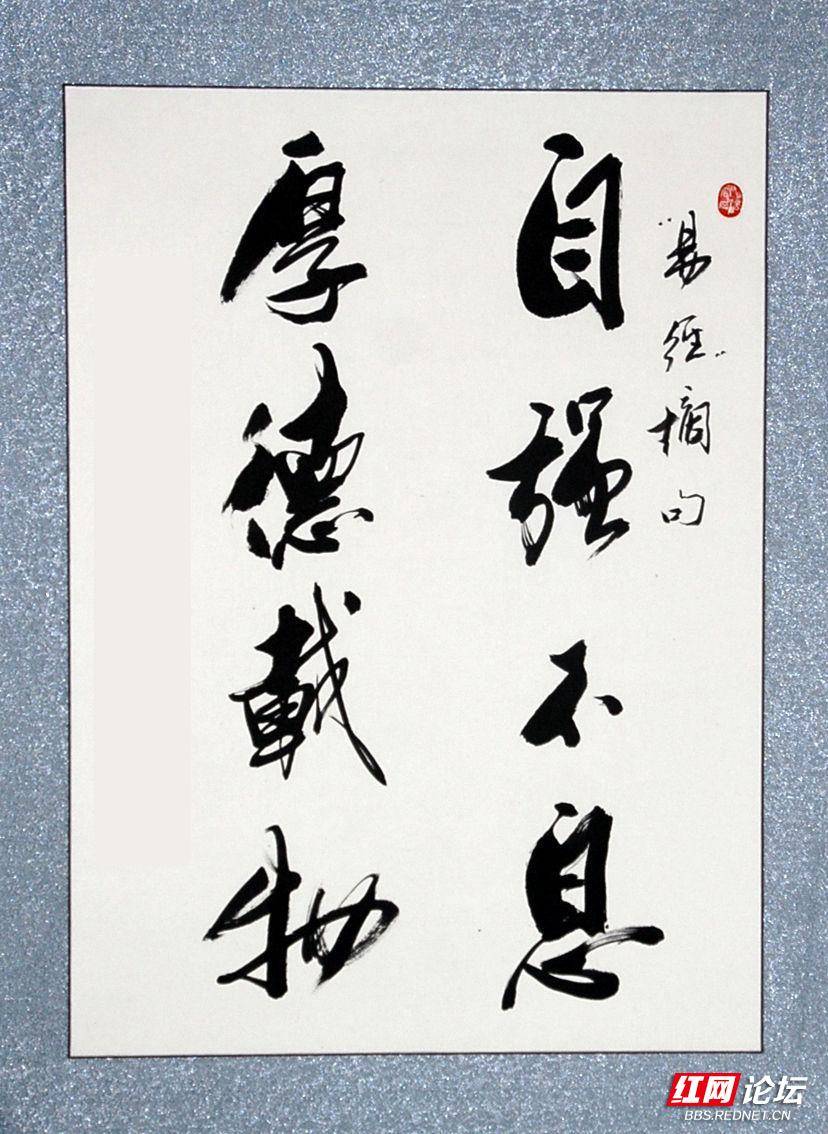 《易經》摘句
自強不息
厚德載物
红网论坛
BBS.REDNET.CN